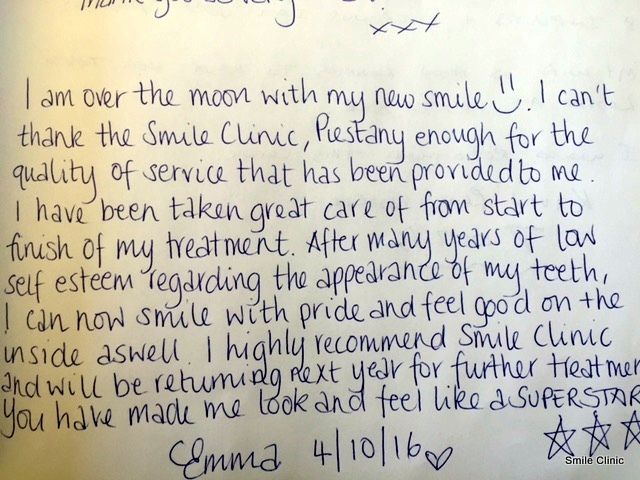 Thank you so very
xxx
I am over the moon with my new smile. I can't
thank the Smile Clinic, Piestany enough for the
quality of service that has been provided to me.
I have been taken great care of from start to
finish of my treatment. After many years of low
self esteem regarding the appearance of my teeth,
I can now smile with pride and feel good on the
inside aswell. I highly recommend Smile Clinic
and will be returning next year for further treatmen
You have made me look and feel like a SUPERSTAR
Emma 4/10/16
Smile Clinic